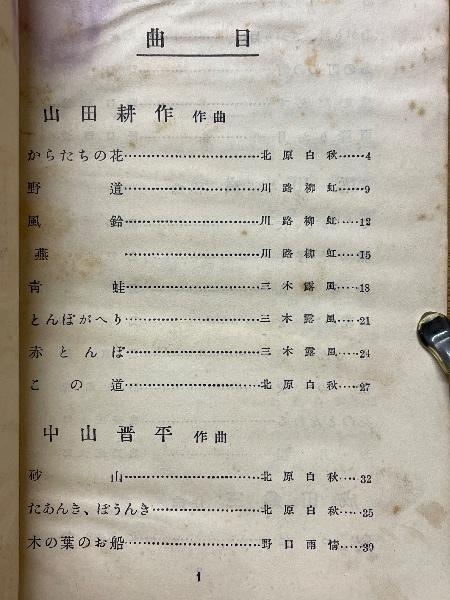 曲目
山田耕作 作曲
からたちの花……………………北原白秋……4
野道……………………川路柳虹……9
風鈴……………………川路柳虹……12
燕……………………川路柳虹……15
青蛙……………………三木露風……18
とんぼがへり……………………三木露風……21
赤とんぼ……………………三木露風……24
この道……………………北原白秋……27
中山晋平 作曲
砂山……………………北原白秋……32
たあんき、ぽうんき……………………北原白秋……35
木の葉のお船……………………野口雨情……39
1